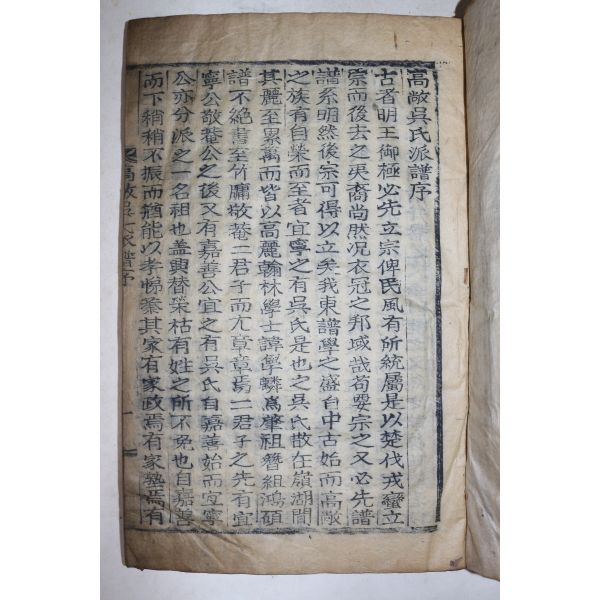 高敞吳氏派譜序
古者明王御極必先立宗俾民風有所統屬是以楚伐戎蠻立
宗而後去之夷裔尚然况衣冠之邦域哉苟要宗之又必先譜
譜系明然後宗可得以立矣我東譜學之盛自中古始而高敞
之族有自榮而至者宜寧之有吳氏是也之吳氏散在嶺湖間
其麗至累萬而皆以高麗翰林學士諱學麟爲肇祖簪組鴻碩
譜不絶書至竹牖敬菴二君子而尤章章焉二君子之先有宜
寧公敬菴公之後又有嘉善公宜之有吳氏自嘉善始而宜寧
公亦分派之一名祖也盖興替榮枯有姓之所不免也自嘉善
而下稍稍不振而猶能以孝悌
其家有家政焉有家塾焉有
高敞吳氏派譜序
一